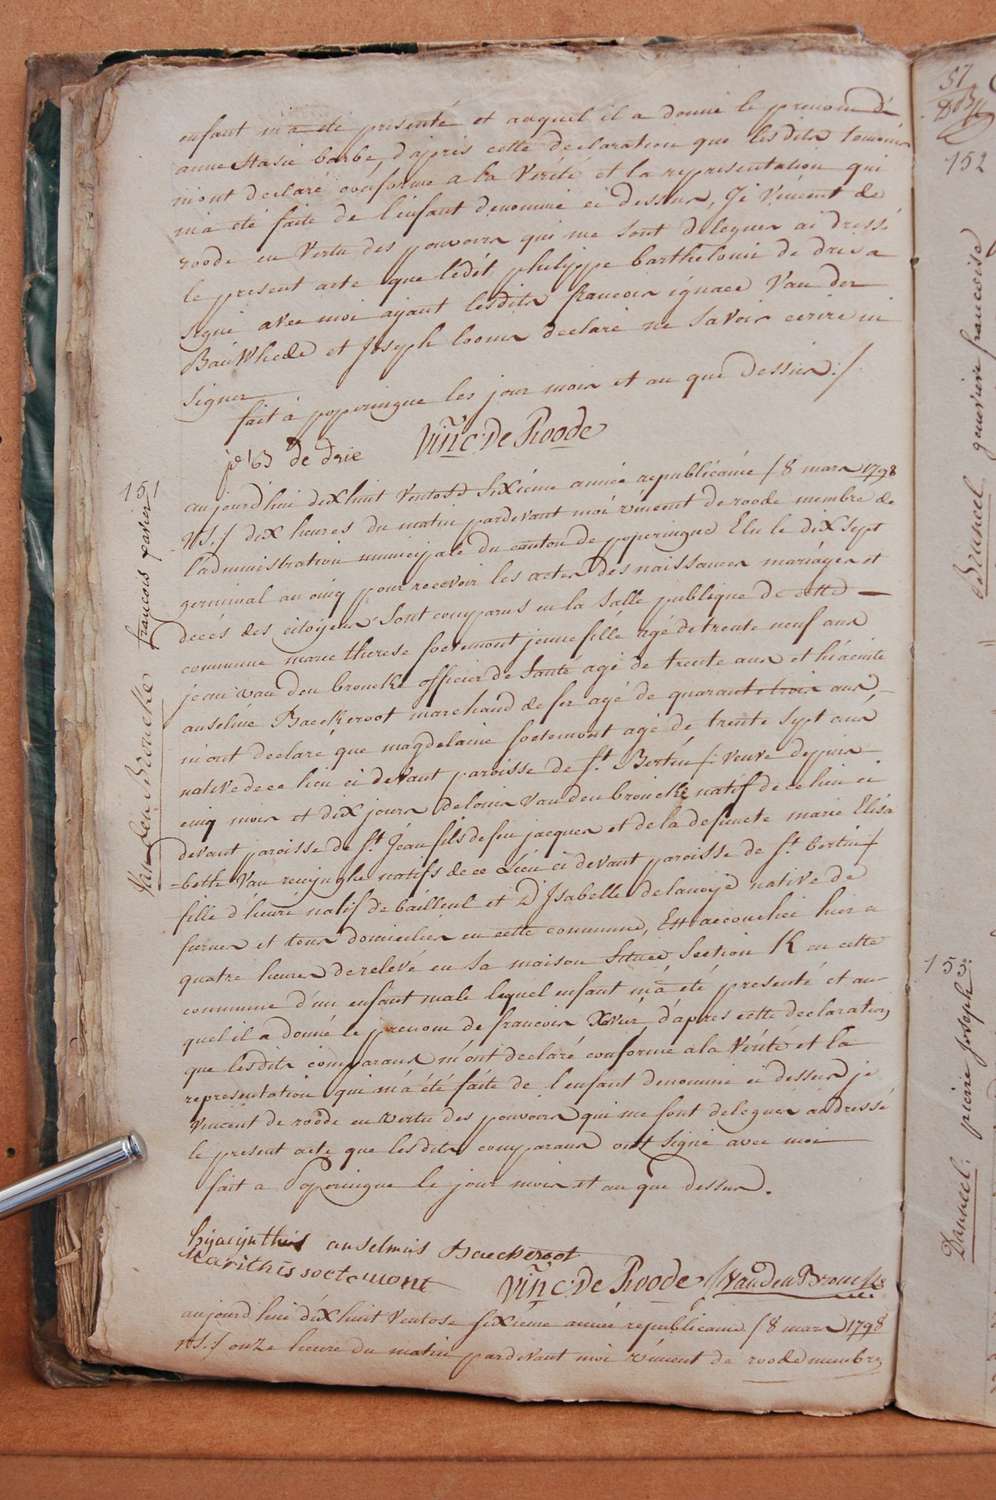 enfant m'a été presenté et auquel il a donné le prenom d'
anne Stasie barbe, d'apris cette declaration que lesdits temoins
m'ont declaré conforme a la Vérité et la representation qui
m'a été faite de l'enfant denommé ci dessus, Je Vincent de
roode en Vertu des pouvoirs qui me sont deleguer ai dressé
le present acte que ledit philippe barthelomi de drie a
signé avec moi ayant lesdits francois ignace Van der
Bauwhede et Joseph looms declaré ne savoir ecrire ni
signer
fait à poperingue les jour mois et an que dessus :/
de drie Vinc: De Roode
151
Vanden Broucke francois xavier
aujourd'hui dixhuit Ventose sixieme année republicaine / 8 mars 1798
VS:/ dix heures du matin pardevant moi vincent de roode membre de
l'administration municipale du canton de poperingue Elu le dix sept
germinal an cinq pour recevoir les actes des naissances mariages et
decés des citoyens sont comparus en la salle publique de cette
commune marie therese soetemont jeune fille agé de trente neuf ans
jean van den broucke officier de santé agé de trente ans et hiacinte
anselme Baeckeroot marchand de fer agé de quarante trois ans,
m'ont declaré que magdelaine soetemont agé de trente sept ans
native de ce lieu ci devant paroisse de st. Bertin /: veuve depuis
cinq mois et dix jours de louis van den broucke natif de ce lieu ci
devant paroisse de st. Jean fils de feu jacques et de la defuncte marie Elisa
-beth Van renynghe natifs de ce Lieu ci devant paroisse de st. bertin /
fille d'henri natif de bailleul et D'Isabelle delanoye native de
furnes et tous domicilies en cette commune, Est accouchée hier a
quatre heures de relevé en sa maison située section K en cette
commune d'un enfant male lequel enfant m'a été presenté et au
quel il a donné le prenom de francois Xavier, d'apres cette declaration
que lesdits comparans m'ont declaré conforme a la Vérité et la
representation qui m'a été faite de l'enfant denommé ci dessus je
Vincent de roode en vertu des pouvoirs qui me sont deleguer ai dressé
le present acte que lesdits comparans ont signé avec moi
fait a Poperingue le jour mois et an que dessus.
hyacynthus anselmus Baeckeroot
Vinc: De Roode J VandenBroucke
aujourd'hui dixhuit Ventose sixieme année republicaine / 8 mars 1798
VS:/ onze heure du matin pardevant moi vincent de roode membre
57
152
Brunel genevieve francoise
153
Dannuel: pierre Joseph